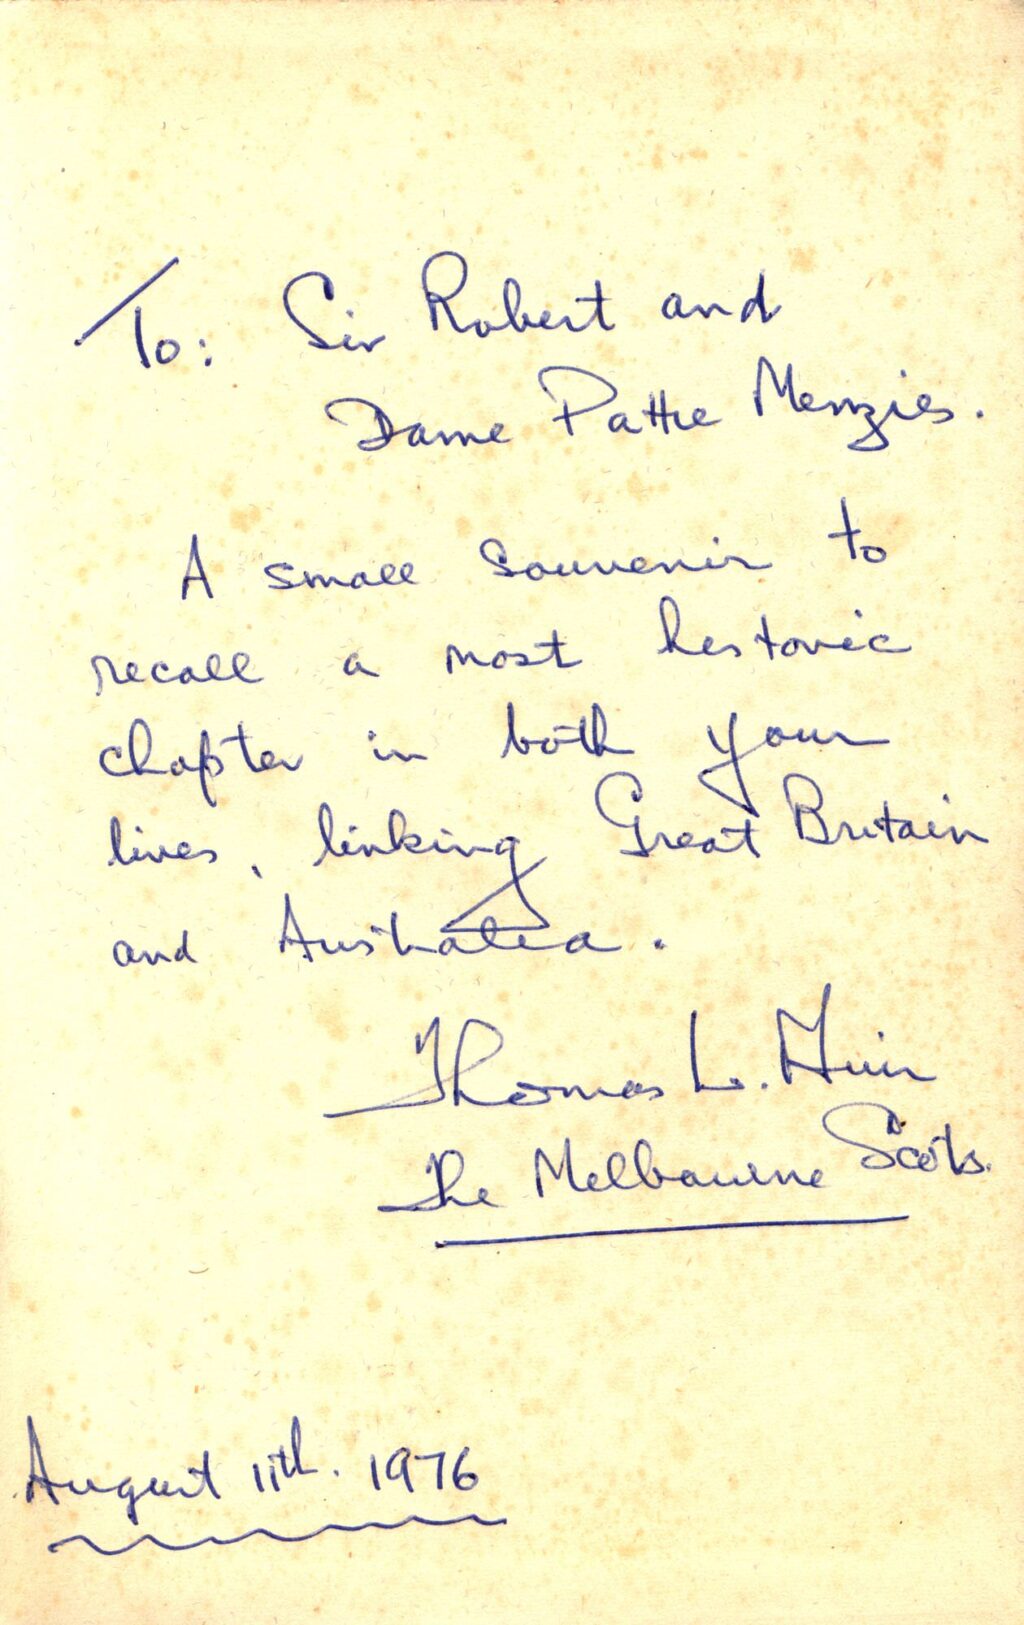 To: Sir Robert and
Dame Pattie Menzies.
A small souvenir to
recall a most historic
chapter in both your
lives, linking Great Britain
and Australia.
Thomas L. Muir
The Melbourne Scots.
August 11th. 1976